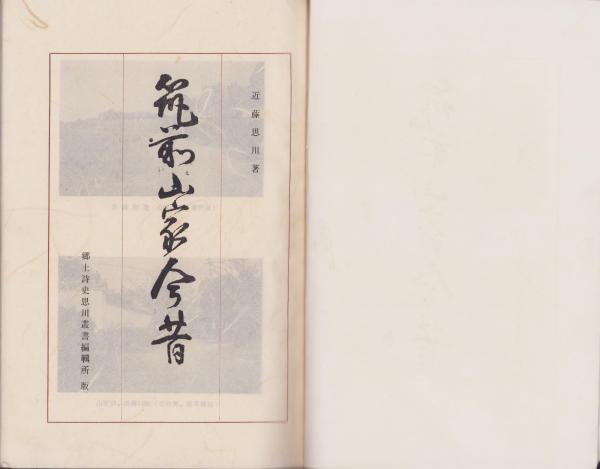 近藤思川著
筑前山家今昔
郷土詩史思川叢書編輯所版